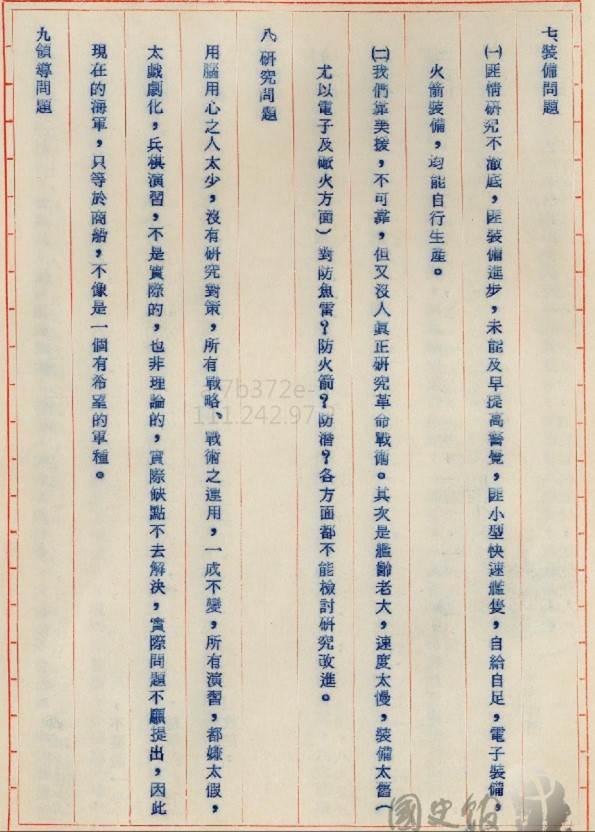 七、裝備問題
㈠匪情研究不澈底，匪裝備進步，未能及早提高警覺，匪小型快速艦隻，自給自足，電子裝備，
火箭裝備，均能自行生產。
㈡我們靠美援，不可靠，但又沒人眞正研究革命戰術。其次是艦齡老大，速度太慢，裝備太舊（
尤以電子及礮火方面）對防魚雷？防火箭？防潛？各方面都不能檢討研究改進。
八、研究問題
用腦用心之人太少，沒有研究對策，所有戰略、戰術之運用，一成不變，所有演習，都嫌太假，
太戲劇化，兵棋演習，不是實際的，也非理論的，實際缺點不去解決，實際問題不願提出，因此
現在的海軍，只等於商船，不像是一個有希望的軍種。
九、領導問題
7b372e-
111.242.97.
國史館